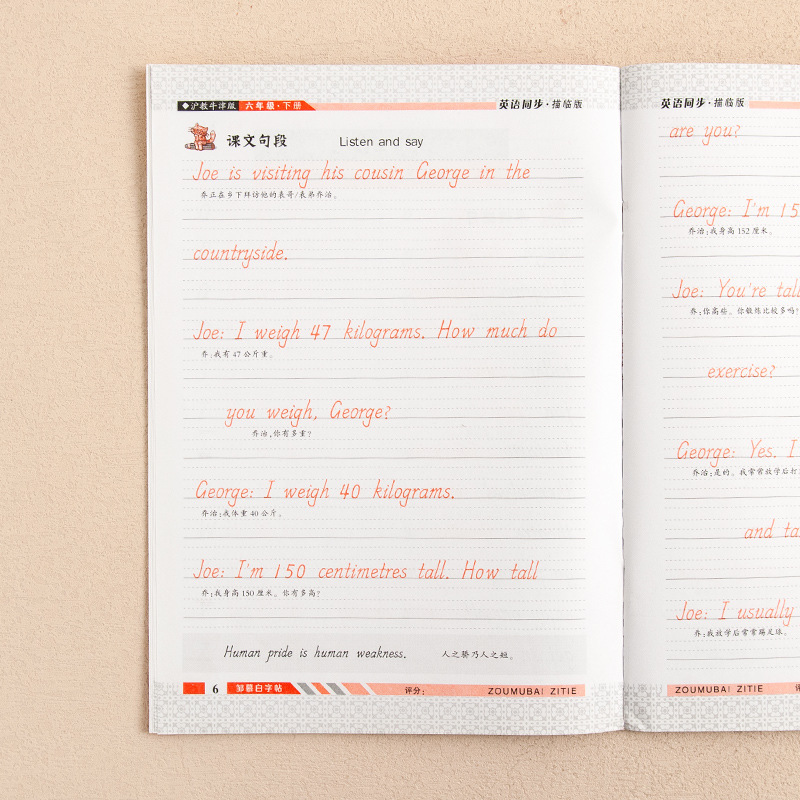 ◆沪教牛津版 六年级·下册
英语同步·描临版
课文句段 Listen and say
Joe is visiting his cousin George in the
乔正在乡下拜访他的表哥/表弟乔治。
countryside.
Joe: I weigh 47 kilograms. How much do
乔:我有47公斤重。
you weigh, George?
乔治,你有多重?
George: I weigh 40 kilograms.
乔治:我体重40公斤。
Joe: I'm 150 centimetres tall. How tall
乔:我身高150厘米。你有多高?
Human pride is human weakness. 人之骄乃人之短。
6 邹慕白字帖 评分: ZOUMUBAI ZITIE
英语同步·描临版
are you?
George: I'm 15
乔治:我身高152厘米。
Joe: You're tall
乔:你高些。你锻炼比较多吗?
exercise?
George: Yes. I
乔治:是的。我常常放学后打
and
Joe: I usually
乔:我放学后常常踢足球。
ZOUMUBAI ZITIE